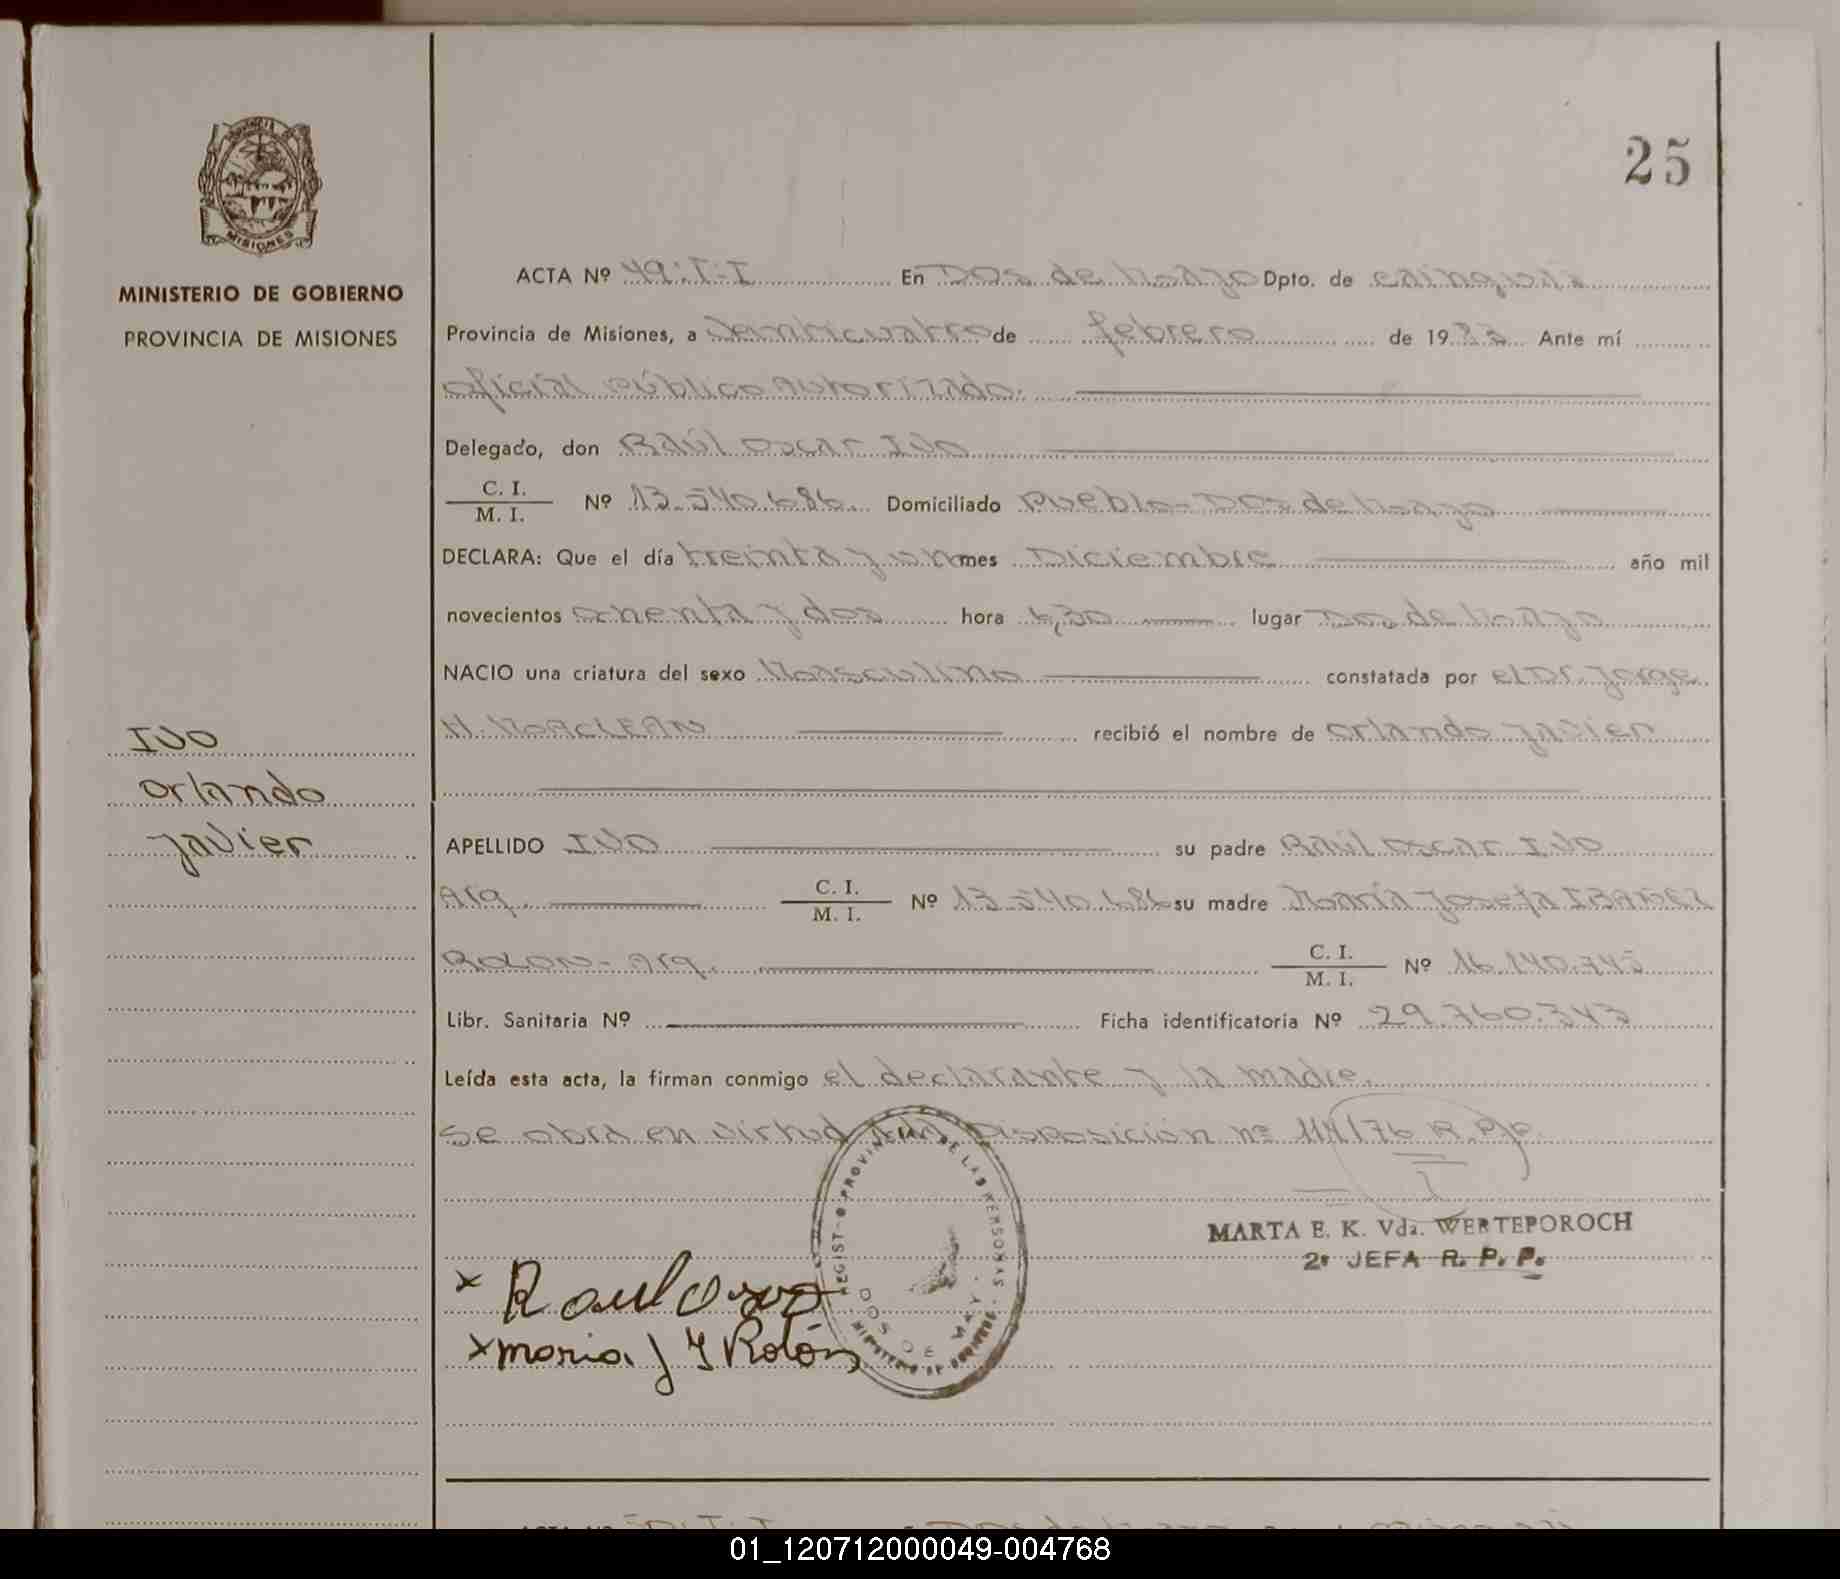 25
PROVINCIA
MISIONES
MINISTERIO DE GOBIERNO
PROVINCIA DE MISIONES
ACTA Nº 49:I-I En Dos de Mayo Dpto. de Cainguás
Provincia de Misiones, a veinticuatro de febrero de 1983 Ante mí
oficial público Autorizado.
Delegado, don Raúl Oscar IVO
C. I.
M. I. Nº 13.540.686. Domiciliado Pueblo-Dos de Mayo
DECLARA: Que el día treinta y uno mes Diciembre año mil
novecientos ochenta y dos hora 6,30 lugar Dos de Mayo
NACIO una criatura del sexo Masculino constatada por el Dr. Jorge
H. MACLEAN recibió el nombre de Orlando Javier
IVO
Orlando
Javier
APELLIDO IVO su padre Raúl Oscar IVO
Arg. C. I.
M. I. Nº 13.540.686 su madre María Josefa
ROLON - Arg. C. I.
M. I. Nº 16.140.745
Libr. Sanitaria Nº Ficha identificatoria Nº 29.760.343
Leída esta acta, la firman conmigo el declarante y la madre.
Se obra en virtud Disposición nº 114/76 R.P.P.
MARTA E. K. Vda. WERTEPOROCH
2ª JEFA R. P. P.
x Raul O
x maria J Y Rolón
DOS DE MAYO
ACTA Nº
01_120712000049-004768